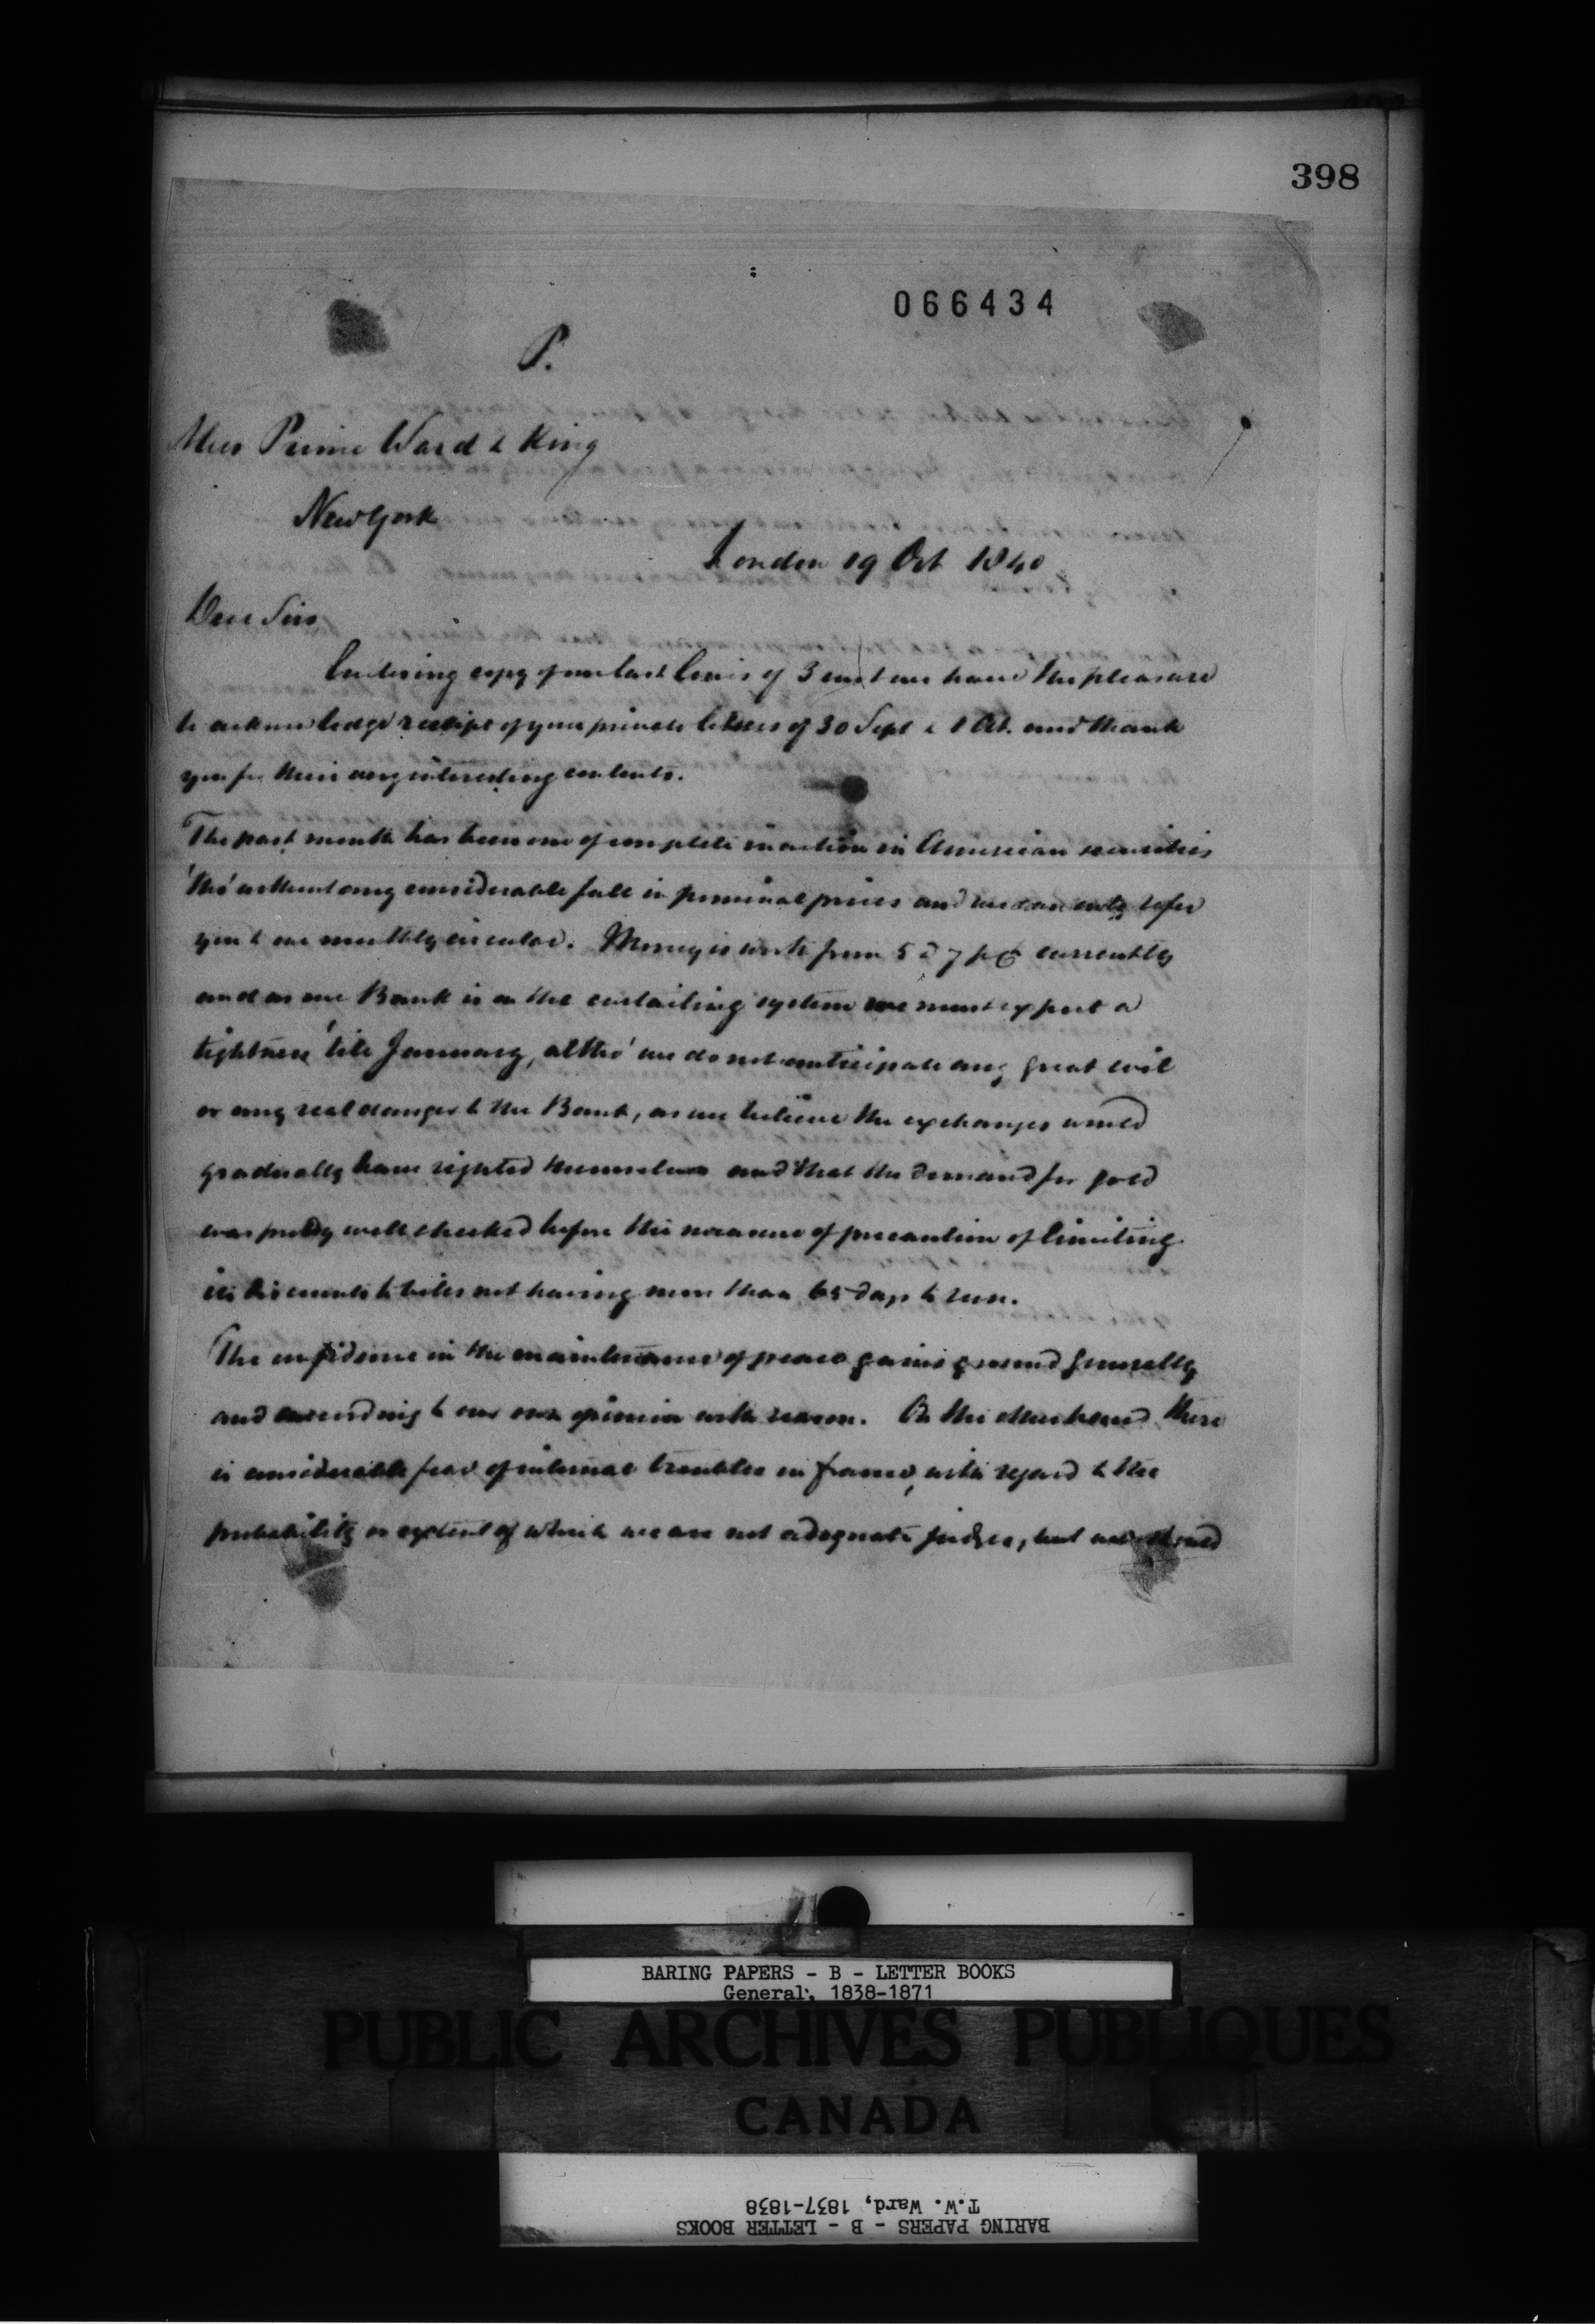 398
066434
P.
Mess Prime Ward & King
New York
London 19 Oct 1840
Dear Sirs
Enclosing copy of our last lines of 3 inst we have the pleasure
to acknowledge receipt of your private letters of 30 Sept & 1 Oct. and thank
you for their very interesting contents.
The past month has been one of complete inaction in American securities
'tho' without any considerable fall in nominal prices and we can only refer
you to our monthly circular. Money is worth from 5 a 7 p Ct currently
and as our Bank is on the curtailing system we must expect a
tightness 'till January, altho' we do not anticipate any great evil
or any real danger to the Bank, as we believe the exchanges would
gradually have righted themselves and that the demand for gold
was pretty well checked before the measure of precaution of limiting
its discounts to bills not having more than 65 days to run.
The confidence in the maintenance of peace gains ground generally
and according to our own opinion with reason. On the other hand there
is considerable fear of internal troubles in France, with regard to the
probability or extent of which we are not adequate judges, but we should
BARING PAPERS - B - LETTER BOOKS
General, 1838-1871
PUBLIC ARCHIVES PUBLIQUES
CANADA
T.W. Ward, 1837-1838
BARING PAPERS - B - LETTER BOOKS